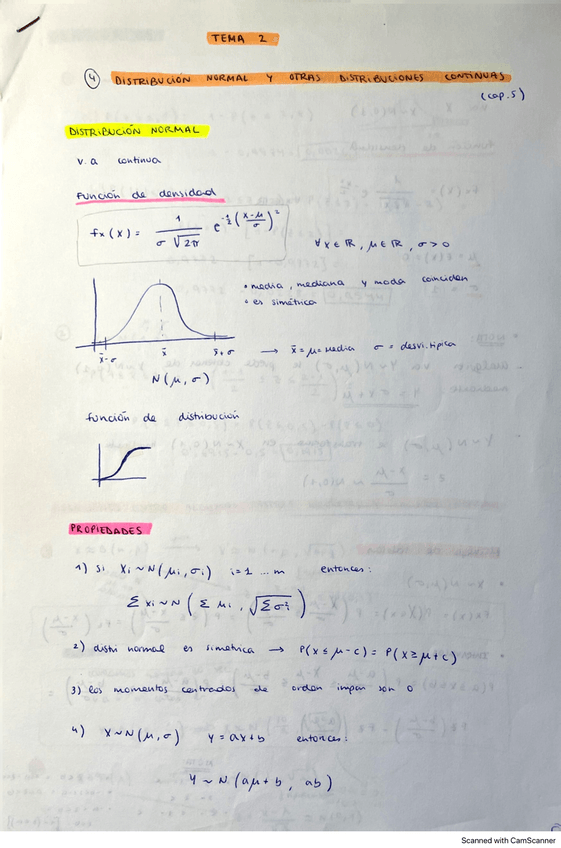 TEMA 2
④ DISTRIBUCIÓN NORMAL Y OTRAS DISTRIBUCIONES CONTINUAS
(cap. 5)
DISTRIBUCIÓN NORMAL
v. a continua
Función de densidad
fx (x) = 1 / (σ √2π) e^(-1/2 ((x-μ)/σ)²)
∀ x ∈ ℝ, μ ∈ ℝ, σ > 0
• media, mediana y moda coinciden
• es simétrica
x̄-σ x̄ x̄+σ → x̄ = μ = media σ = desv. típica
N(μ, σ)
función de distribución
PROPIEDADES
1) Si Xi ~ N(μi, σi) i=1 ... m entonces:
Σ xi ~ N (Σ μi, √Σσi²)
2) distri normal es simétrica → P(X ≤ μ-c) = P(X ≥ μ+c)
3) los momentos centrados de orden impar son 0
4) X ~ N(μ, σ) Y = ax+b entonces:
Y ~ N (aμ+b, ab)
Scanned with CamScanner